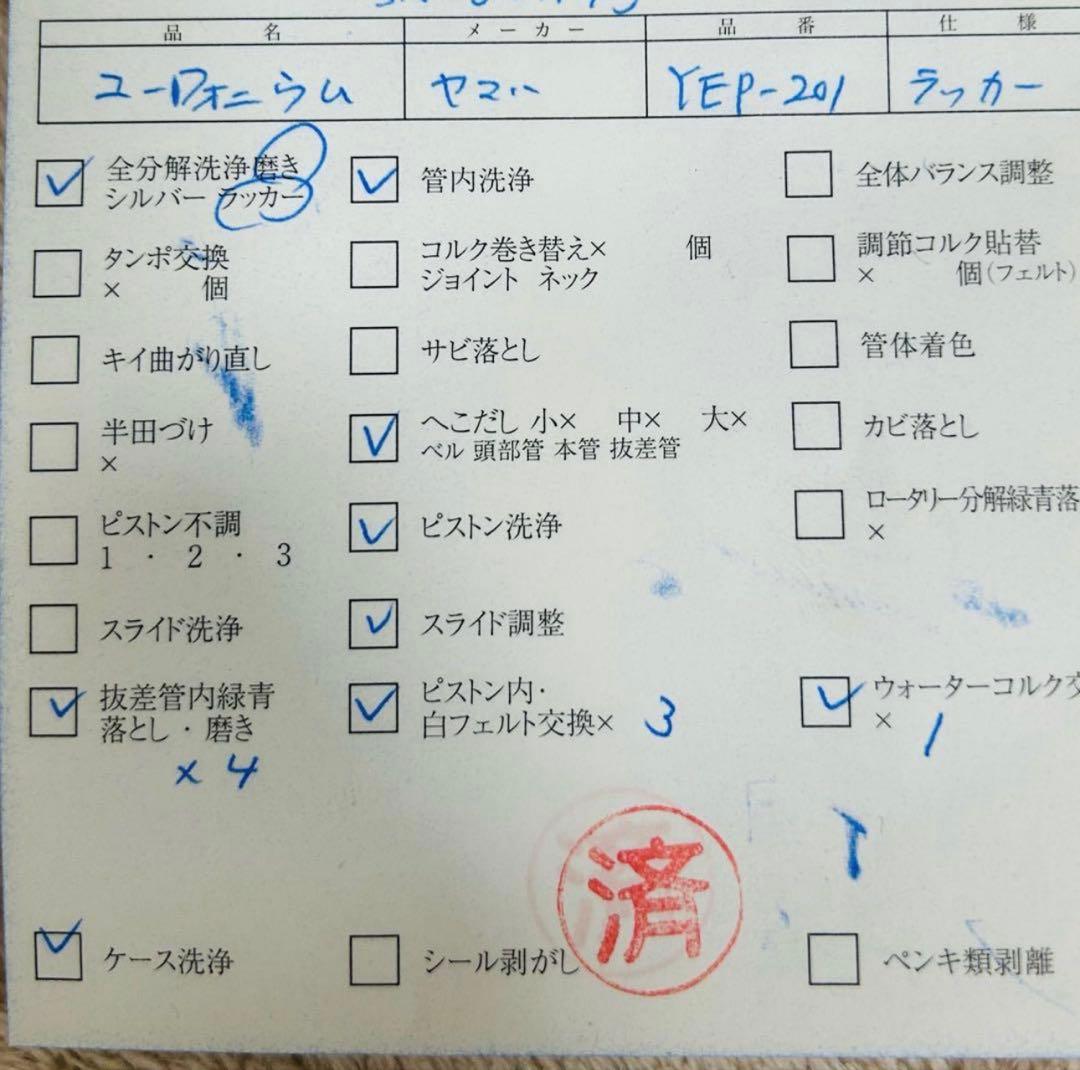 品名 メーカー 品番 仕様
ユーフォニウム ヤマハ YEP-201 ラッカー
全分解洗浄磨き
シルバー ラッカー
管内洗浄
全体バランス調整
タンポ交換
× 個
コルク巻き替え× 個
ジョイント ネック
調節コルク貼替
× 個(フェルト)
キイ曲がり直し
サビ落とし
管体着色
半田づけ
×
へこだし 小× 中× 大×
ベル 頭部管 本管 抜差管
カビ落とし
ピストン不調
1・2・3
ピストン洗浄
ロータリー分解緑青落
×
スライド洗浄
スライド調整
抜差管内緑青
落とし・磨き
×4
ピストン内・
白フェルト交換× 3
ウォーターコルク交
× 1
済
ケース洗浄
シール剥がし
ペンキ類剥離